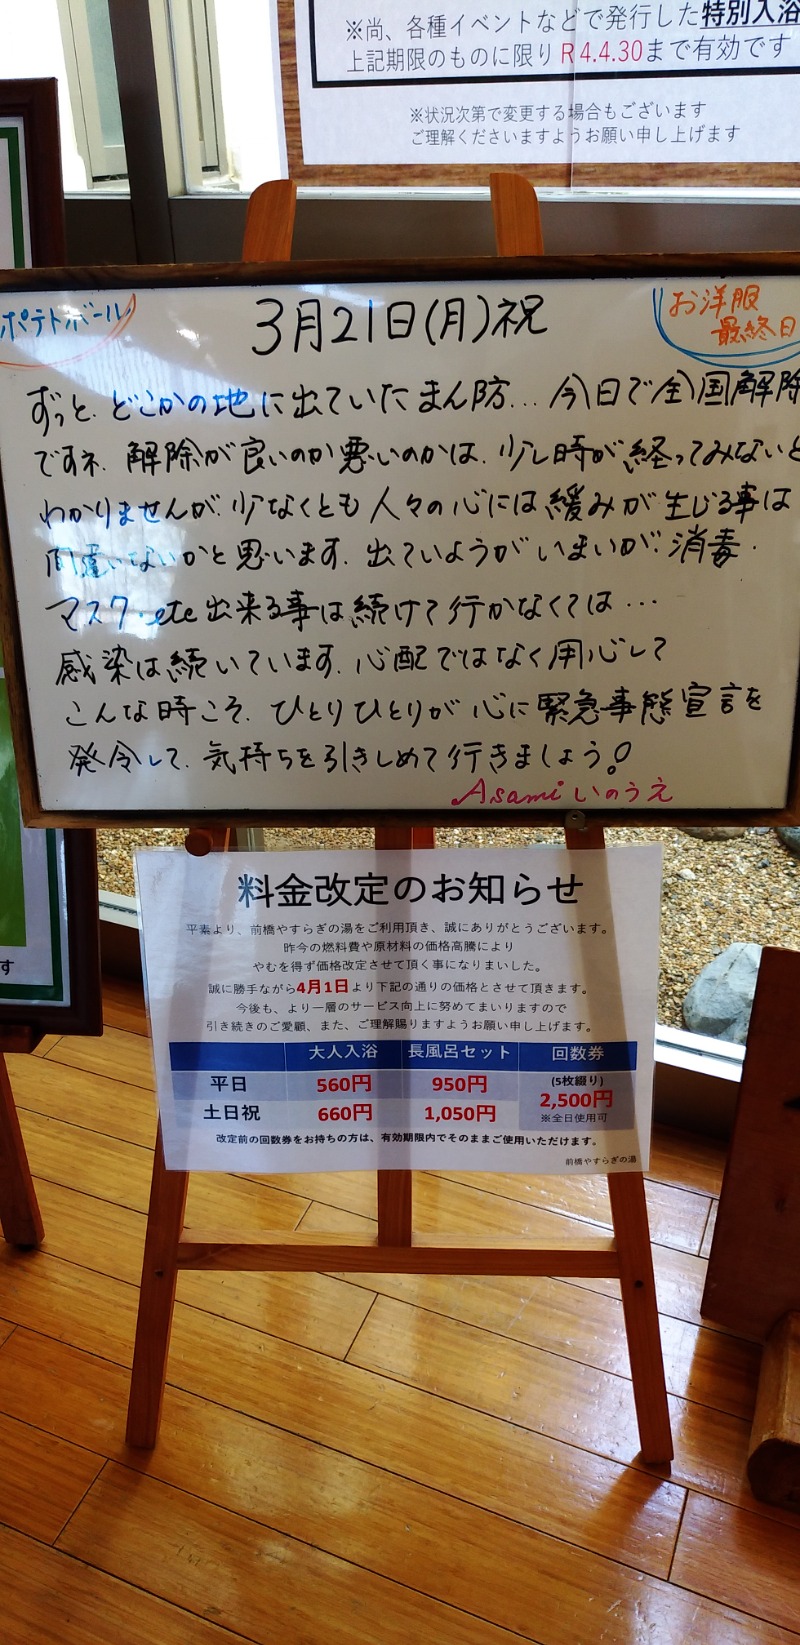 ※尚、各種イベントなどで発行した特別入浴
上記期限のものに限りR4.4.30まで有効です
※状況次第で変更する場合もございます
ご理解くださいますようお願い申し上げます
ポテトボール
3月21日(月)祝
お洋服
最終日
ずっと、どこかの地に出ていたまん防...今日で全国解除
ですネ、解除が良いのか悪いのかは、少し時が経ってみないと
わかりませんが、少なくとも人々の心には緩みが生じる事は
間違いないかと思います。出ていようがいまいが、消毒・
マスク・etc出来る事は続けて行かなくては...
感染は続いています。心配ではなく用心して
こんな時こそ、ひとりひとりが心に緊急事態宣言を
発令して、気持ちを引きしめて行きましょう!
Asamiいのうえ
料金改定のお知らせ
平素より、前橋やすらぎの湯をご利用頂き、誠にありがとうございます。
昨今の燃料費や原材料の価格高騰により
やむを得ず価格改定させて頂く事になりまいした。
誠に勝手ながら4月1日より下記の通りの価格とさせて頂きます。
今後も、より一層のサービス向上に努めてまいりますので
引き続きのご愛顧、また、ご理解賜りますようお願い申し上げます。
大人入浴 長風呂セット 回数券
平日 560円 950円 (5枚綴り)
2,500円
土日祝 660円 1,050円 ※全日使用可
改定前の回数券をお持ちの方は、有効期限内でそのままご使用いただけます。
前橋やすらぎの湯
す